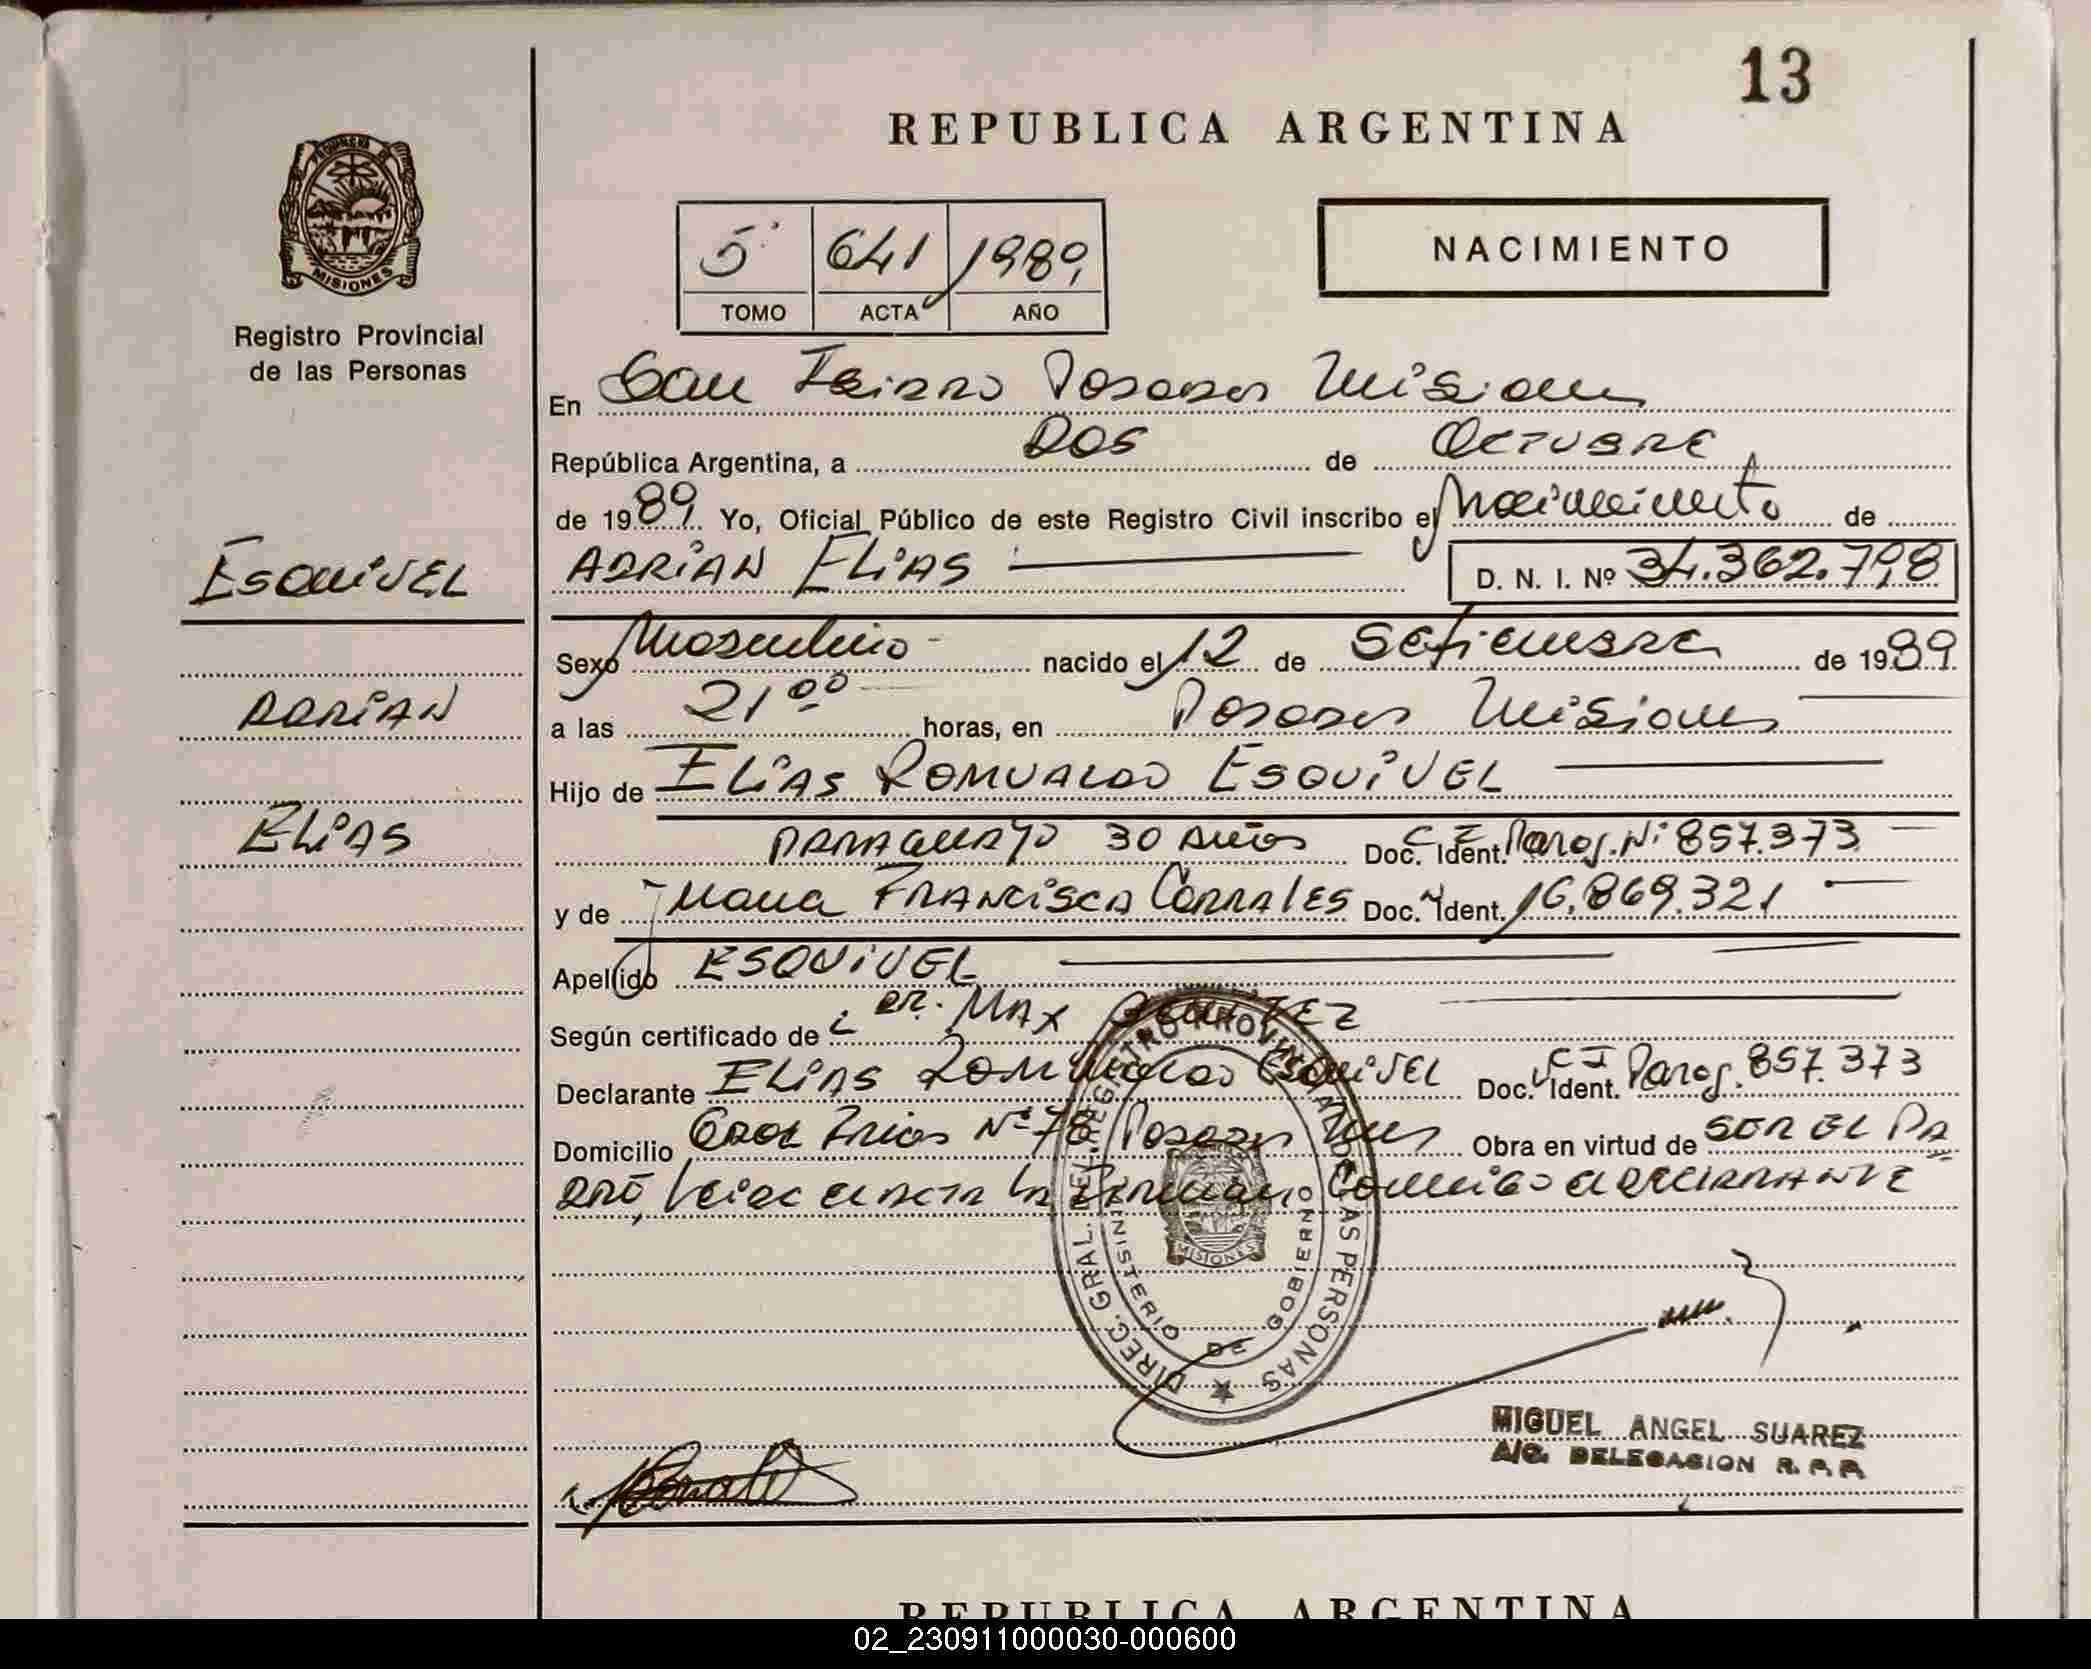 13
REPUBLICA ARGENTINA
PROVINCIA DE
MISIONES
Registro Provincial
de las Personas
NACIMIENTO
5° 641 1989
TOMO ACTA AÑO
En San Isidro Posadas Misiones
República Argentina, a DOS de OCTUBRE
de 1989 Yo, Oficial Público de este Registro Civil inscribo el Nacimiento de
ESQUIVEL
ADRIAN ELIAS D. N. I. Nº 34.362.798
Sexo Masculino - nacido el 12 de Setiembre de 1989
ADRIAN
a las 21 00 horas, en Posadas Misiones
Hijo de ELIAS ROMUALDO ESQUIVEL
ELIAS
PARAGUAYO 30 AÑOS Doc. Ident. C I Parag. Nº 857.373
y de Juana FRANCISCA CORRALES Doc. Ident. 16.869.321
Apellido ESQUIVEL
Según certificado de MAX
Declarante ELIAS ROMUALDO ESQUIVEL Doc. Ident. C I Parag. 857.373
Domicilio Nº 78 Posadas Mnes Obra en virtud de SER EL PA
DRE, Leida el ACTA LA FIRMAN Conmigo el DECLARANTE
DIREC. GRAL. DEL REGISTRO PROVINCIAL DE LAS PERSONAS
MINISTERIO DE GOBIERNO
MISIONES
MIGUEL ANGEL SUAREZ
A/C. DELEGACION R. P. P.
REPUBLICA ARGENTINA
02_230911000030-000600